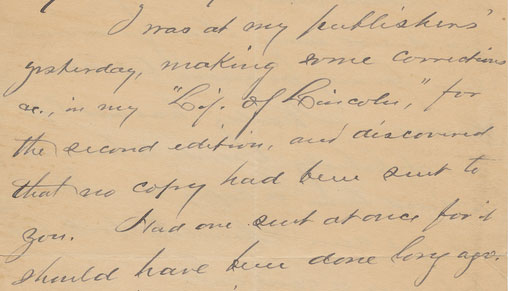 I was at my publishers'
yesterday, making some corrections
&c., in my "Life of Lincoln," for
the second edition, and discovered
that no copy had been sent to
you. Had one sent at once for it
should have been done long ago.